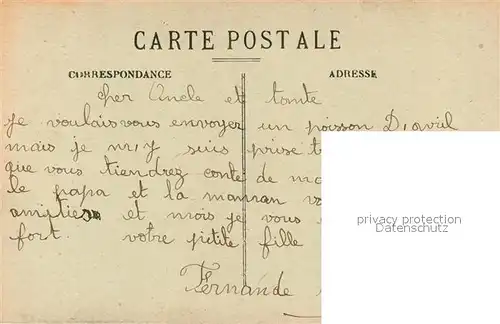 CARTE POSTALE
CORRESPONDANCE ADRESSE
cher Oncle et tomte
je voulais vous envoyer un poisson D'avril
mais je m,y suis prise
que vous tiendrez conte de
le papa et la maman
amitiés et mois je vous
fort. votre petite fille
Fernande
privacy protection
Datenschutz